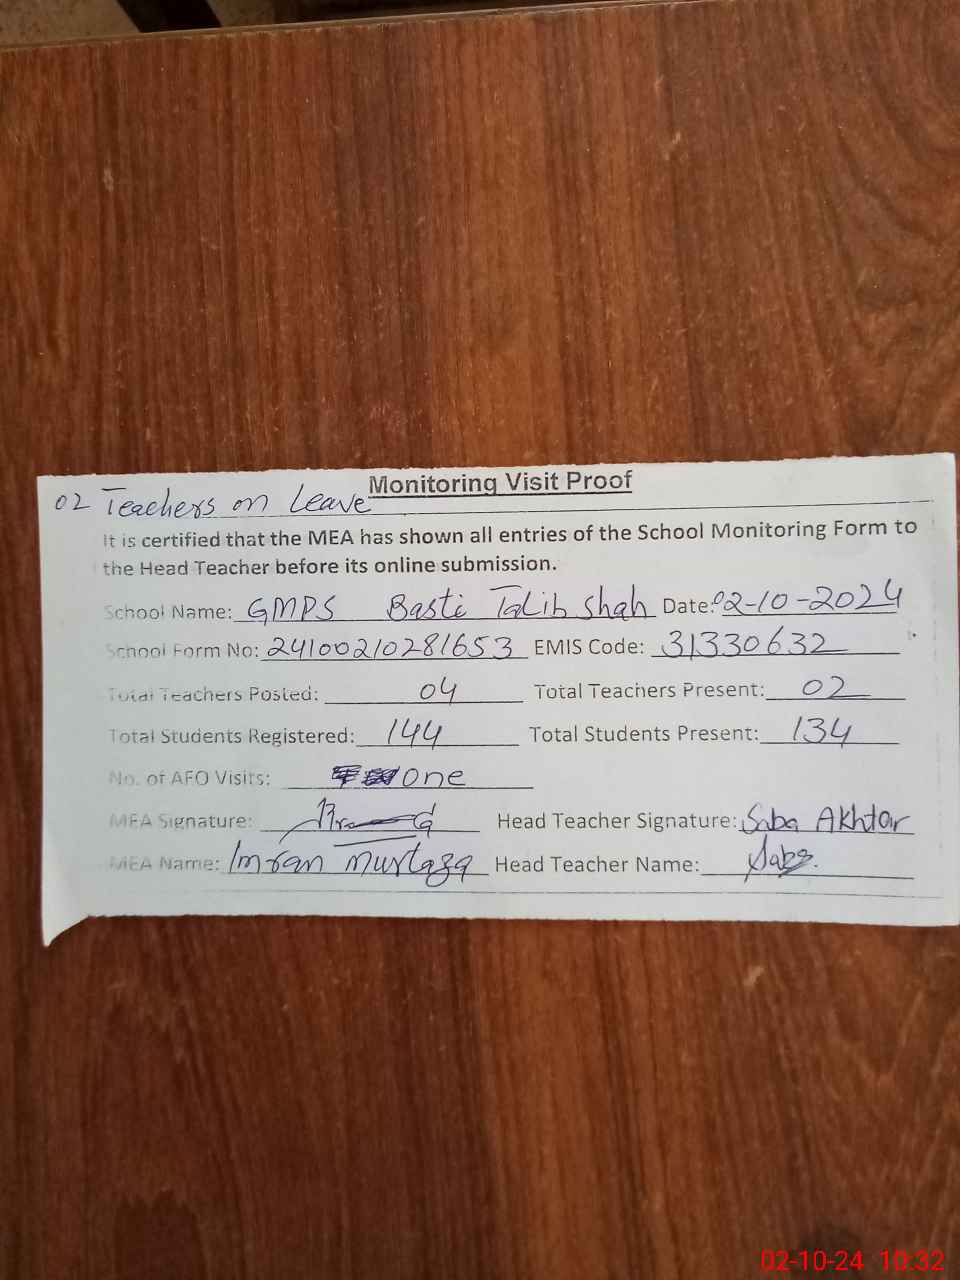 Monitoring Visit Proof
02 Teachers on Leave
It is certified that the MEA has shown all entries of the School Monitoring Form to
the Head Teacher before its online submission.
School Name: GMPS Basti Talib Shah Date: 02-10-2024
School Form No: 24100210281653 EMIS Code: 31330632
Total Teachers Posted: 04 Total Teachers Present: 02
Total Students Registered: 144 Total Students Present: 134
No. of AEO Visits: one
MEA Signature: Head Teacher Signature: Saba Akhtar
MEA Name: Imran Murtaza Head Teacher Name: Saba.
02-10-24 10:32